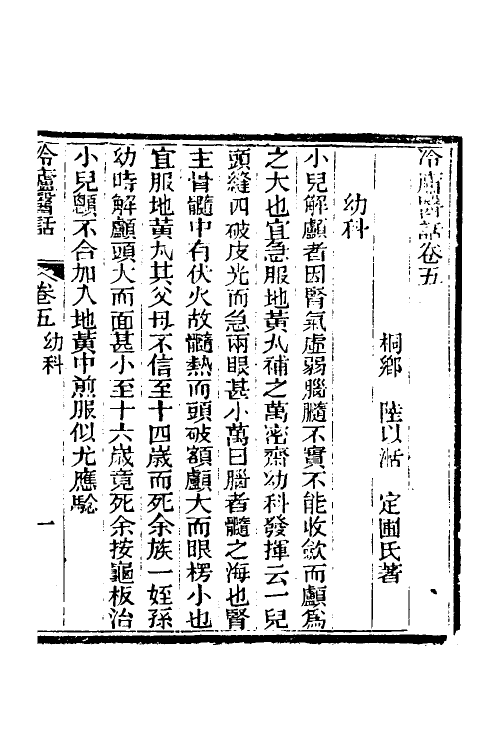 冷廬醫話卷五
桐鄉 陸以湉 定圃氏著
幼科
小兒解顱者因腎氣虛弱腦髓不實不能收歛而顱為
之大也宜急服地黃丸補之萬密齋幼科發揮云一兒
頭縫四破皮光而急兩眼甚小萬曰腦者髓之海也腎
主骨髓中有伏火故髓熱而頭破額顱大而眼楞小也
宜服地黃丸其父母不信至十四歲而死余族一姪孫
幼時解顱頭大而面甚小至十六歲竟死余按龜板治
小兒顖不合加入地黃中煎服似尤應驗
冷廬醫話
卷五
幼科
一